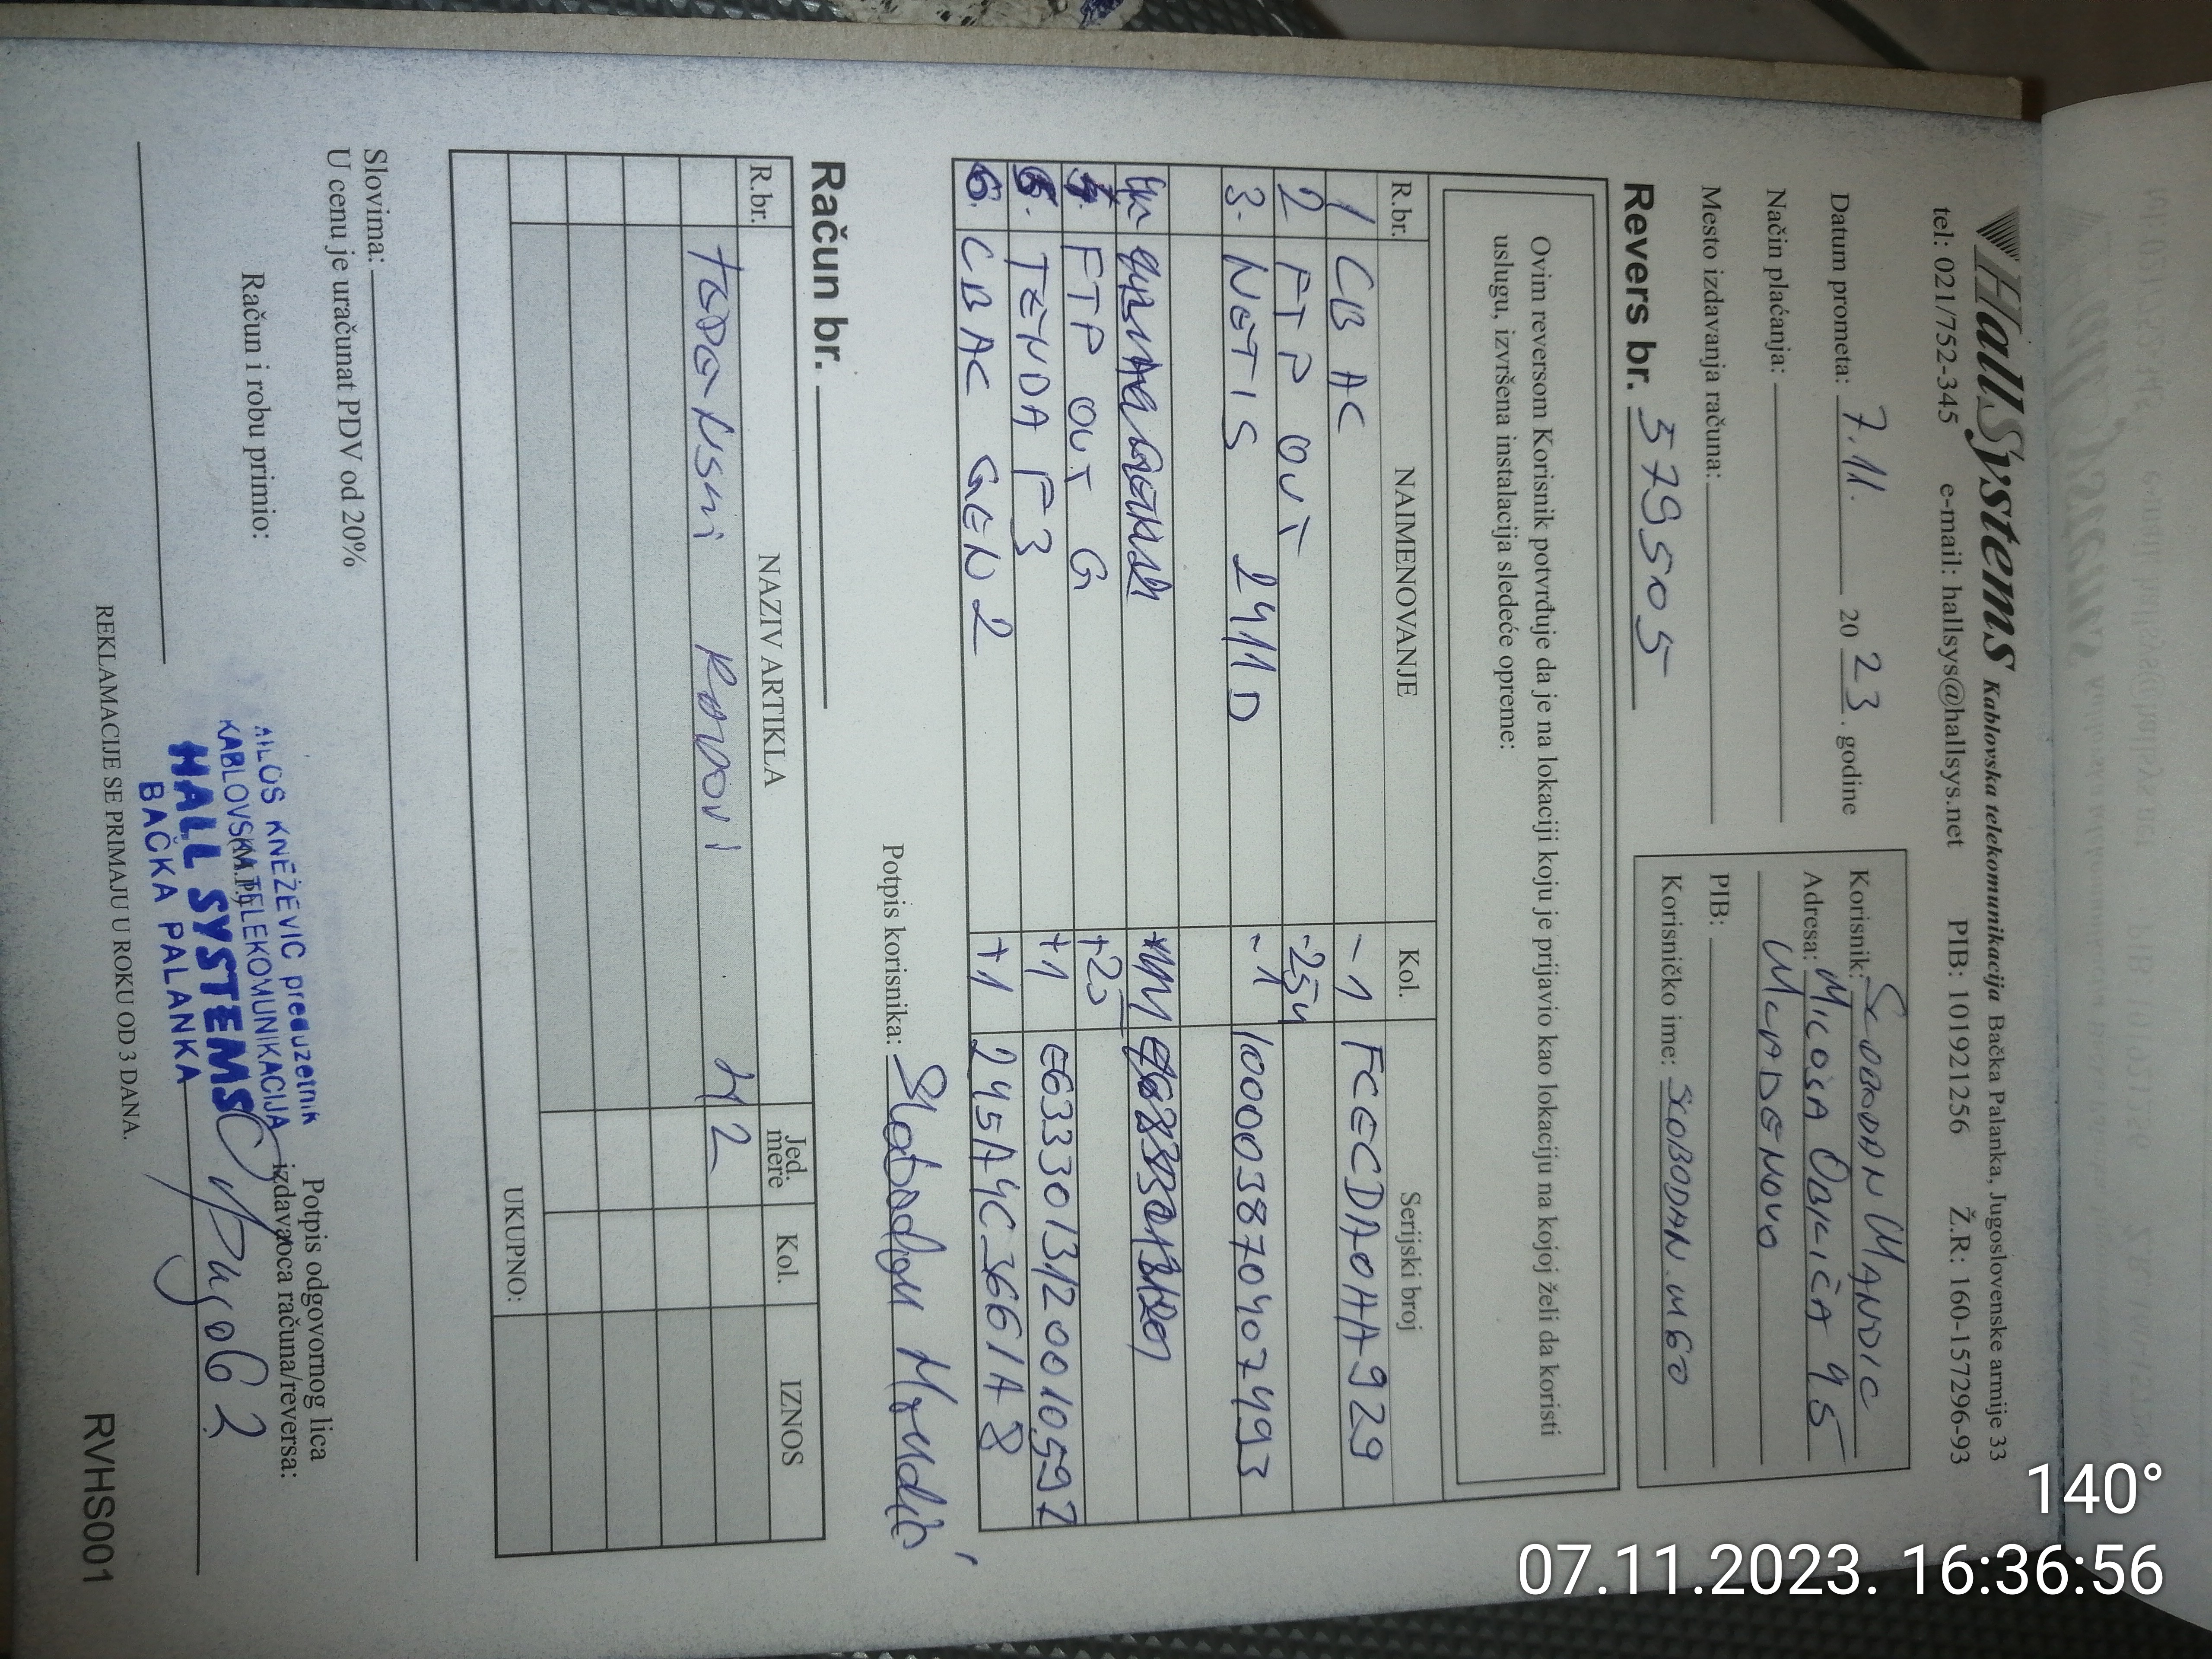 HallSystems Kablovska telekomunikacija Bačka Palanka, Jugoslovenske armije 33
tel: 021/752-345 e-mail: hallsys@hallsys.net PIB: 101921256 Ž.R: 160-157296-93
Datum prometa: 7.11. 20 23. godine
Način plaćanja:
Mesto izdavanja računa:
Korisnik: SLOBODAN MANDIC
Adresa: MILOŠA OBILIĆA 95
MLADENOVO
PIB:
Korisničko ime: SLOBODAN.M60
Revers br. 379505
Ovim reversom Korisnik potvrđuje da je na lokaciji koju je prijavio kao lokaciju na kojoj želi da koristi
uslugu, izvršena instalacija sledeće opreme:
R.br. NAIMENOVANJE Kol. Serijski broj
1 CB AC -1 FCECDA0HA929
2 FTP OUT
3. NETIS 2411D -1 1000038704072493
FTP OUT G
TENDA F3 +1 E6333013120010597
6. CBAC GEN 2 +1 245A4C3661A8
Potpis korisnika: Slobodan Mandić
Račun br.
R.br. NAZIV ARTIKLA Jed. mere Kol. IZNOS
RADOVI
UKUPNO:
Slovima:
U cenu je uračunat PDV od 20%
Račun i robu primio:
Potpis odgovornog lica
izdavaoca računa/reversa:
MILOŠ KNEŽEVIĆ preduzetnik
KABLOVSKA TELEKOMUNIKACIJA
(M.P.)
HALL SYSTEMS
BAČKA PALANKA
REKLAMACIJE SE PRIMAJU U ROKU OD 3 DANA.
RVHS001
140°
07.11.2023. 16:36:56